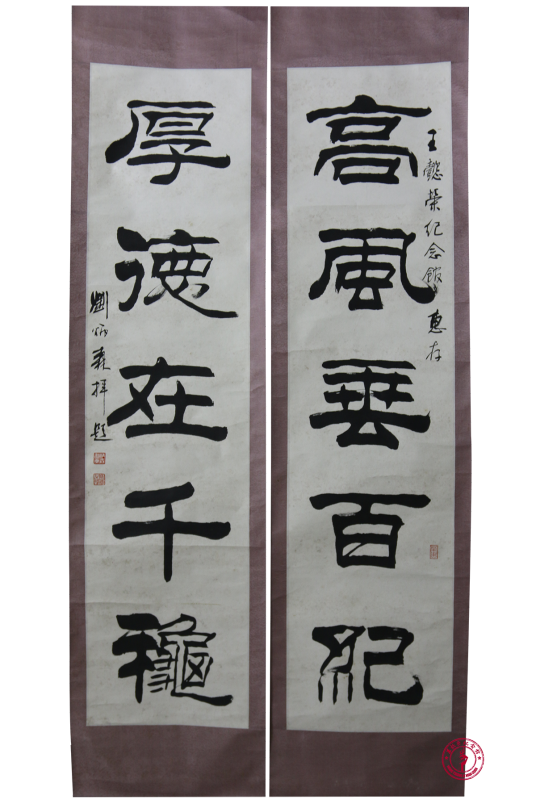 王懿榮纪念館惠存
高風垂百紀
厚德在千龝
劉炳森拜题